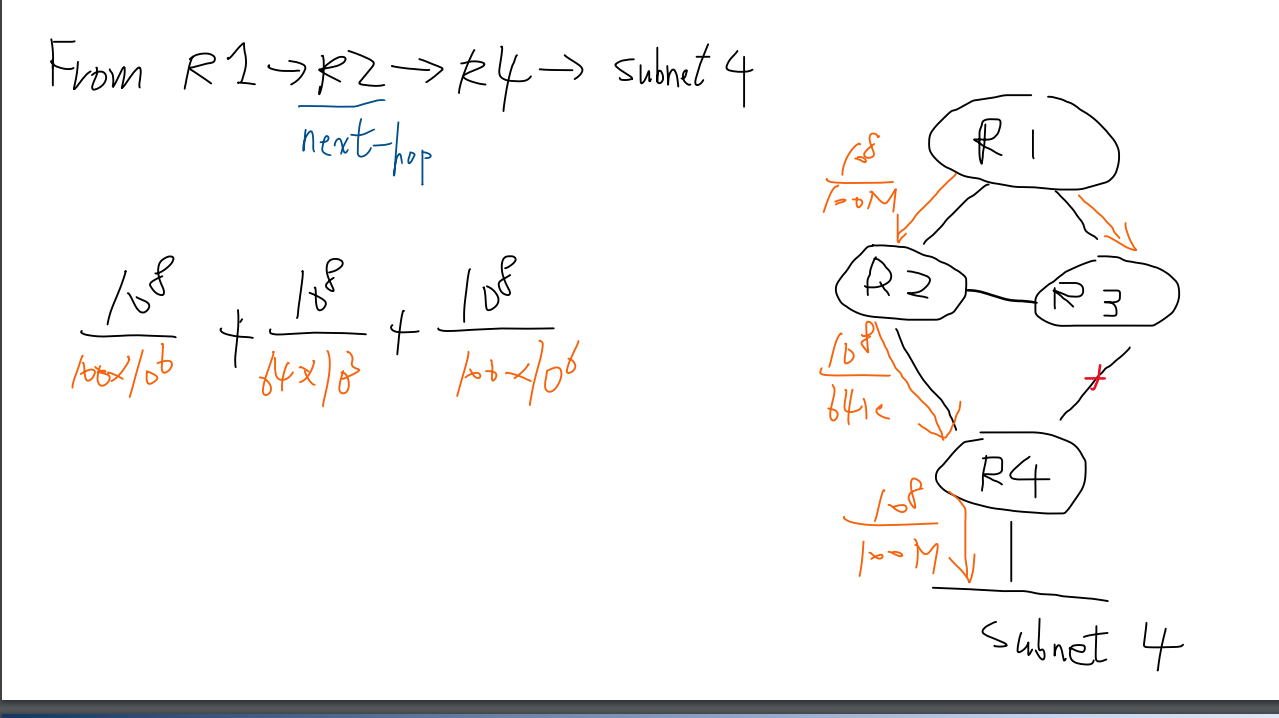 From R1→R2→R4→ subnet 4
next-hop
10^8 / 100×10^6 + 10^8 / 64×10^3 + 10^8 / 100×10^6
R1
10^8
100M
R2
R3
10^8
64k
R4
10^8
100M
subnet 4